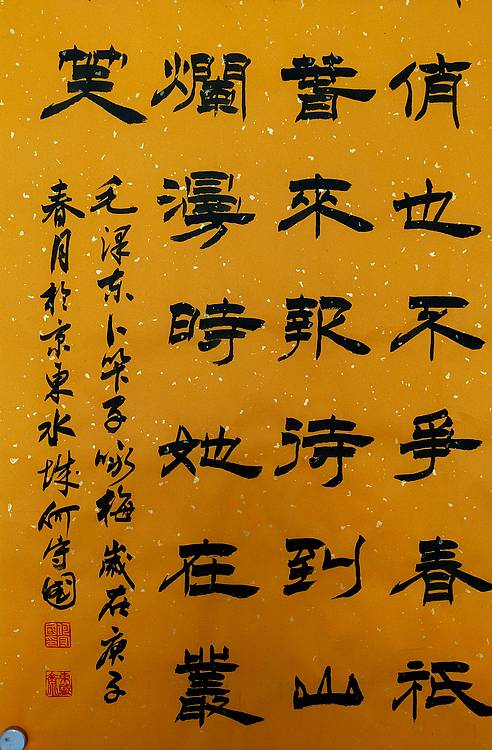 俏也不爭春祇
萅來報待到山
爛漫時她在叢
笑
毛澤东卜算子咏梅歲在庚子
春月於京東水城何守國